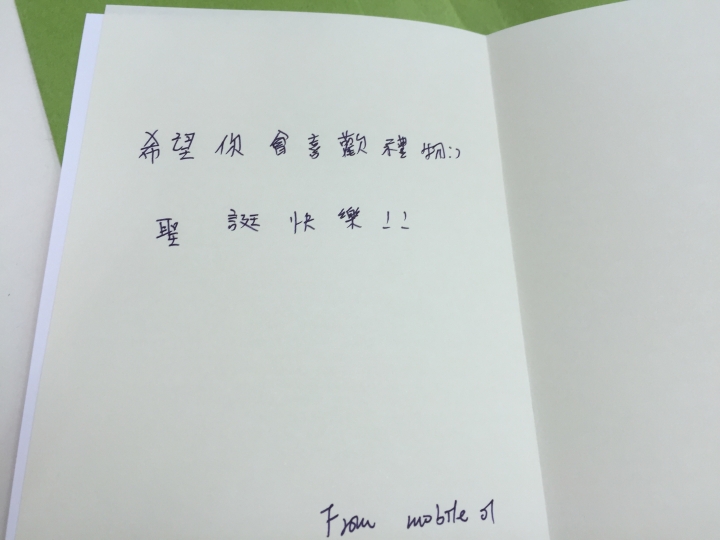 希望你會喜歡禮物:)
聖誕快樂!!
From mobile 01